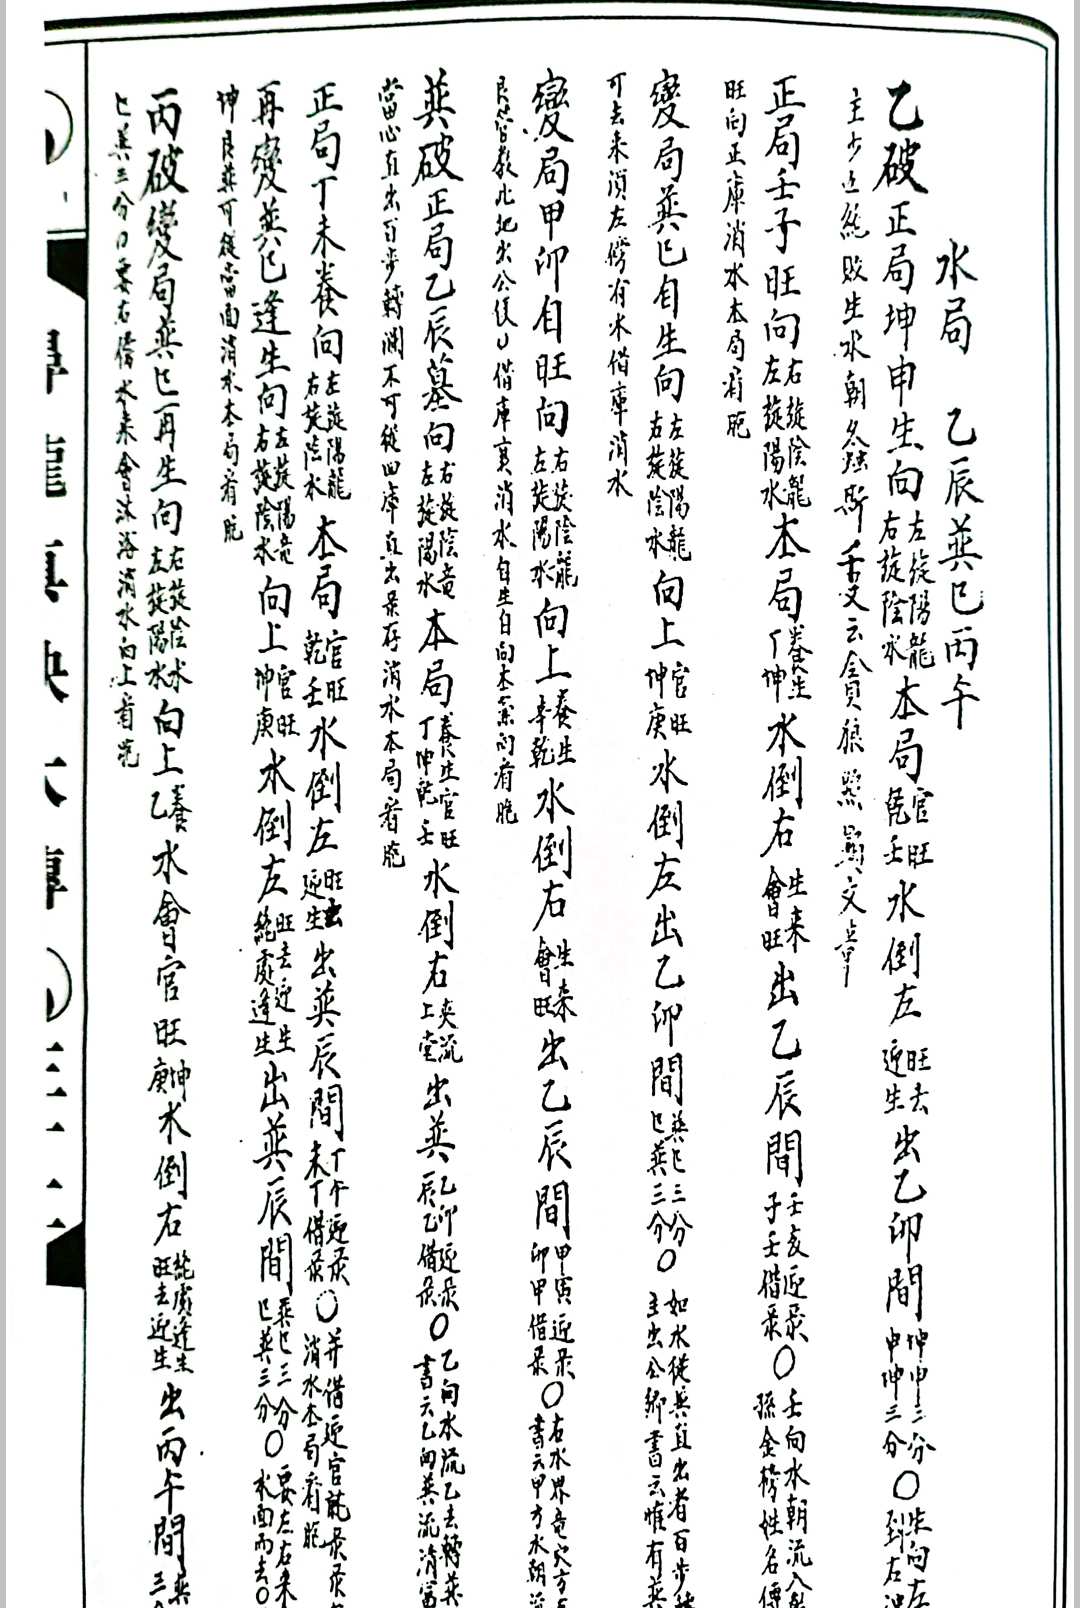 水局 乙辰巽巳丙午
乙破正局坤申生向左旋陽龍右旋陰水本局官旺乾壬水倒左旺去迎生出乙卯間坤申三分申坤三分○生向左到右
主少亡絕敗生水朝螽斯千又云貪狼照顯文章
正局壬子旺向右旋陰龍左旋陽水本局養生丁坤水倒右生来會旺出乙辰間壬亥迎彔子壬借彔○壬向水朝流入孫金榜姓名傳
旺向正庫消水本局肴胣
變局巽巳自生向左旋陽龍右旋陰水向上官旺坤庚水倒左出乙卯間巽巳三分巳巽三分○如水從巽直出者百步主出公卿書云惟有巽
可去来須左傍有水借庫消水
變局甲卯自旺向右旋陰龍左旋陽水向上養生辛乾水倒右生来會旺出乙辰間甲寅迎彔卯甲借彔○右水界竜穴方書云甲方水朝流
艮昔教化地出公侯借庫真消水自生自向本向肴胣
巽破正局乙辰墓向右旋陰竜左旋陽水本局養生官旺丁坤乾壬水倒右夾流上堂出巽乙卯迎彔辰乙借彔○乙向水流乙去轉巽書云乙向巽流清富
當心直出百步轉瀾不可從四庫直出彔存消水本局肴胣
正局丁未養向左旋陽龍右旋陰水本局官旺乾壬水倒左旺去迎生出巽辰間丁午迎彔未丁借彔○并借迎官彔彔消水本局肴胣
再變巽巳逢生向左旋陽竜右旋陰水向上官旺坤庚水倒左旺去迎生絕處逢生出巽辰間巽巳三分巳巽三分○要左右来水面而去○
坤艮巽可從當面消水本局肴胣
丙破變局巽巳再生向右旋陰水左旋陽水向上養乙水會官旺坤庚水倒右絕處逢生旺去迎生出丙午間
巳巽三分○要右借水来會沐浴消水向上肴胣